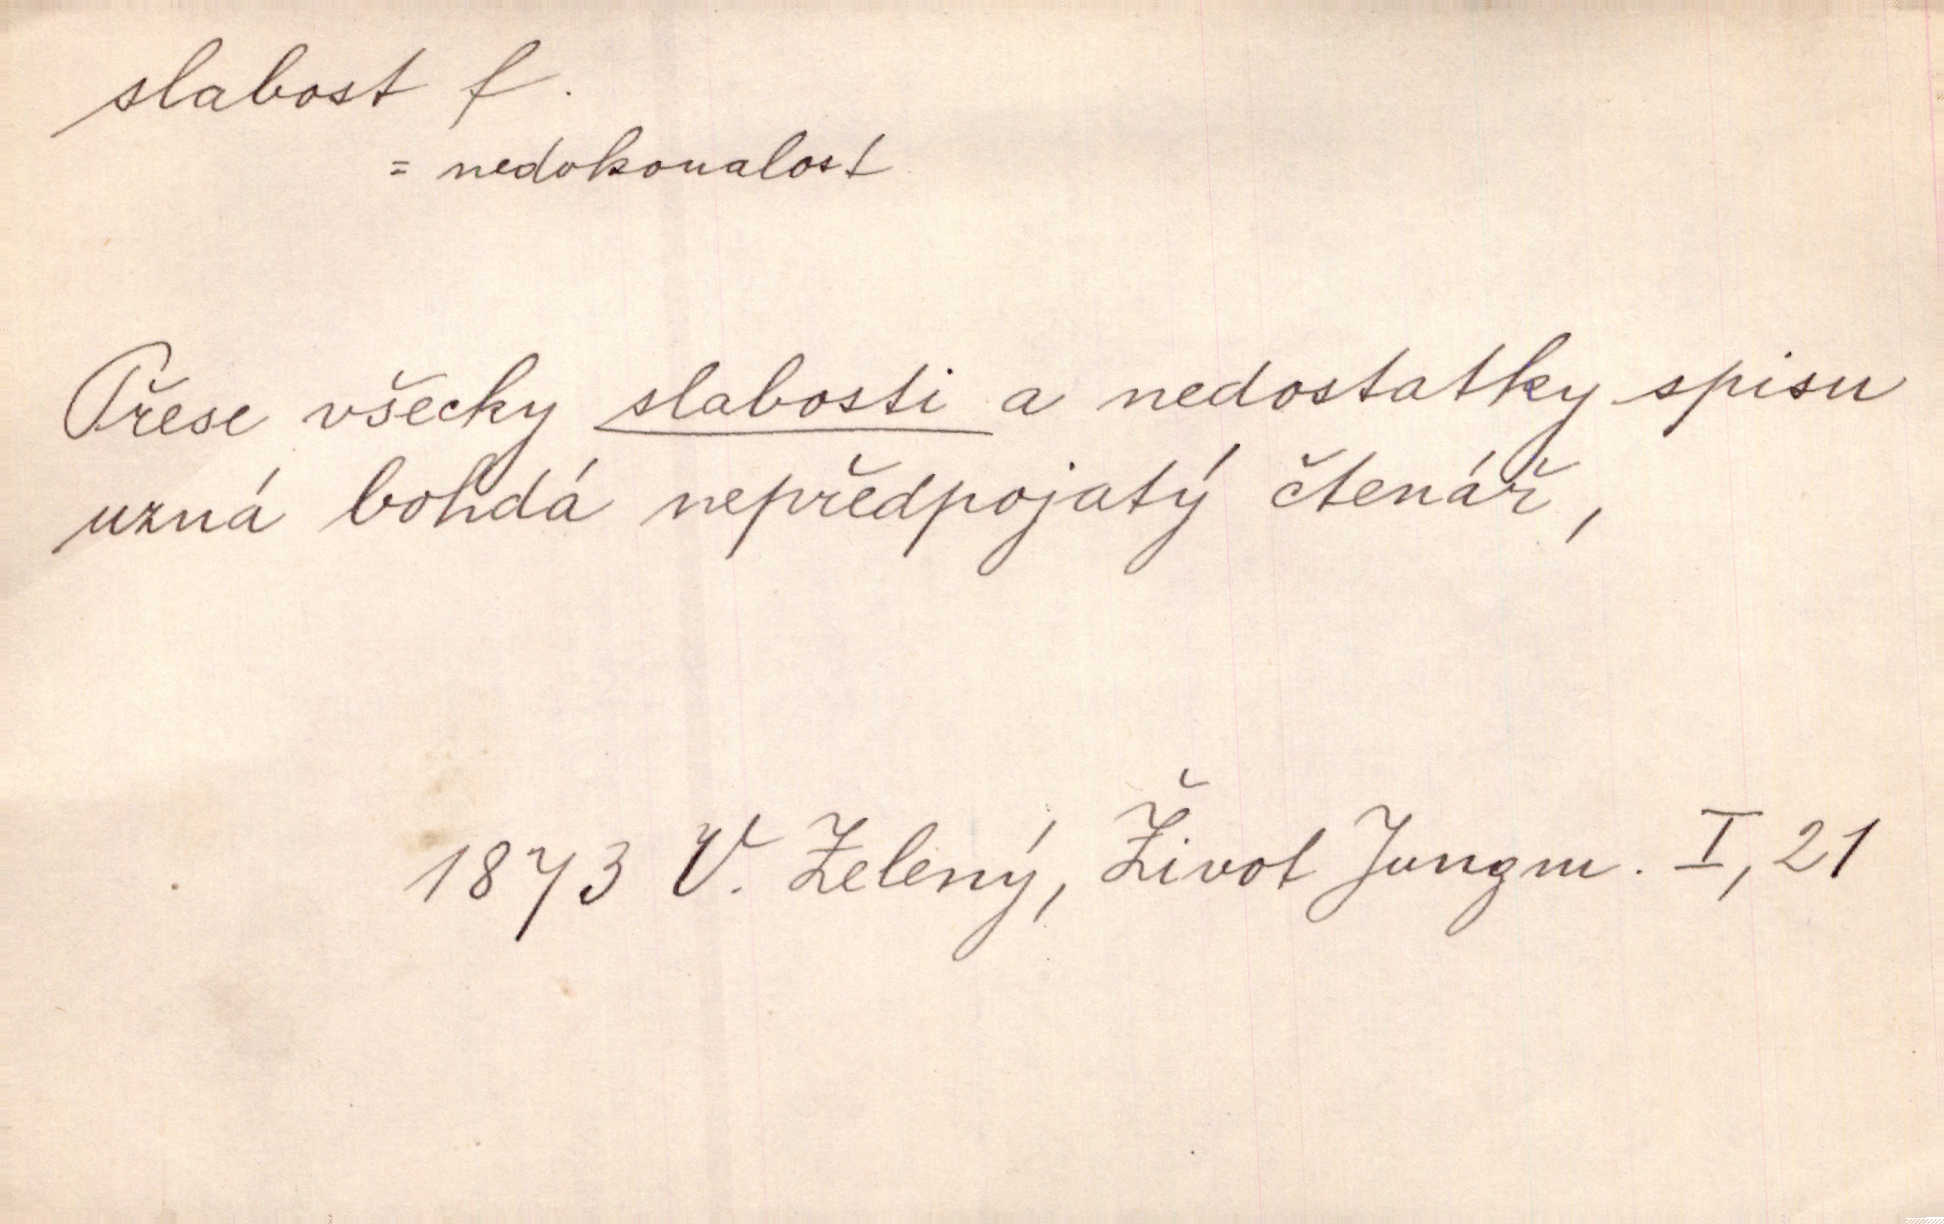 slabost f.
= nedokonalost
Přese všecky slabosti a nedostatky spisu
uzná bohdá nepředpojatý čtenář,
1873 V. Zelený, Život Jungm. I, 21